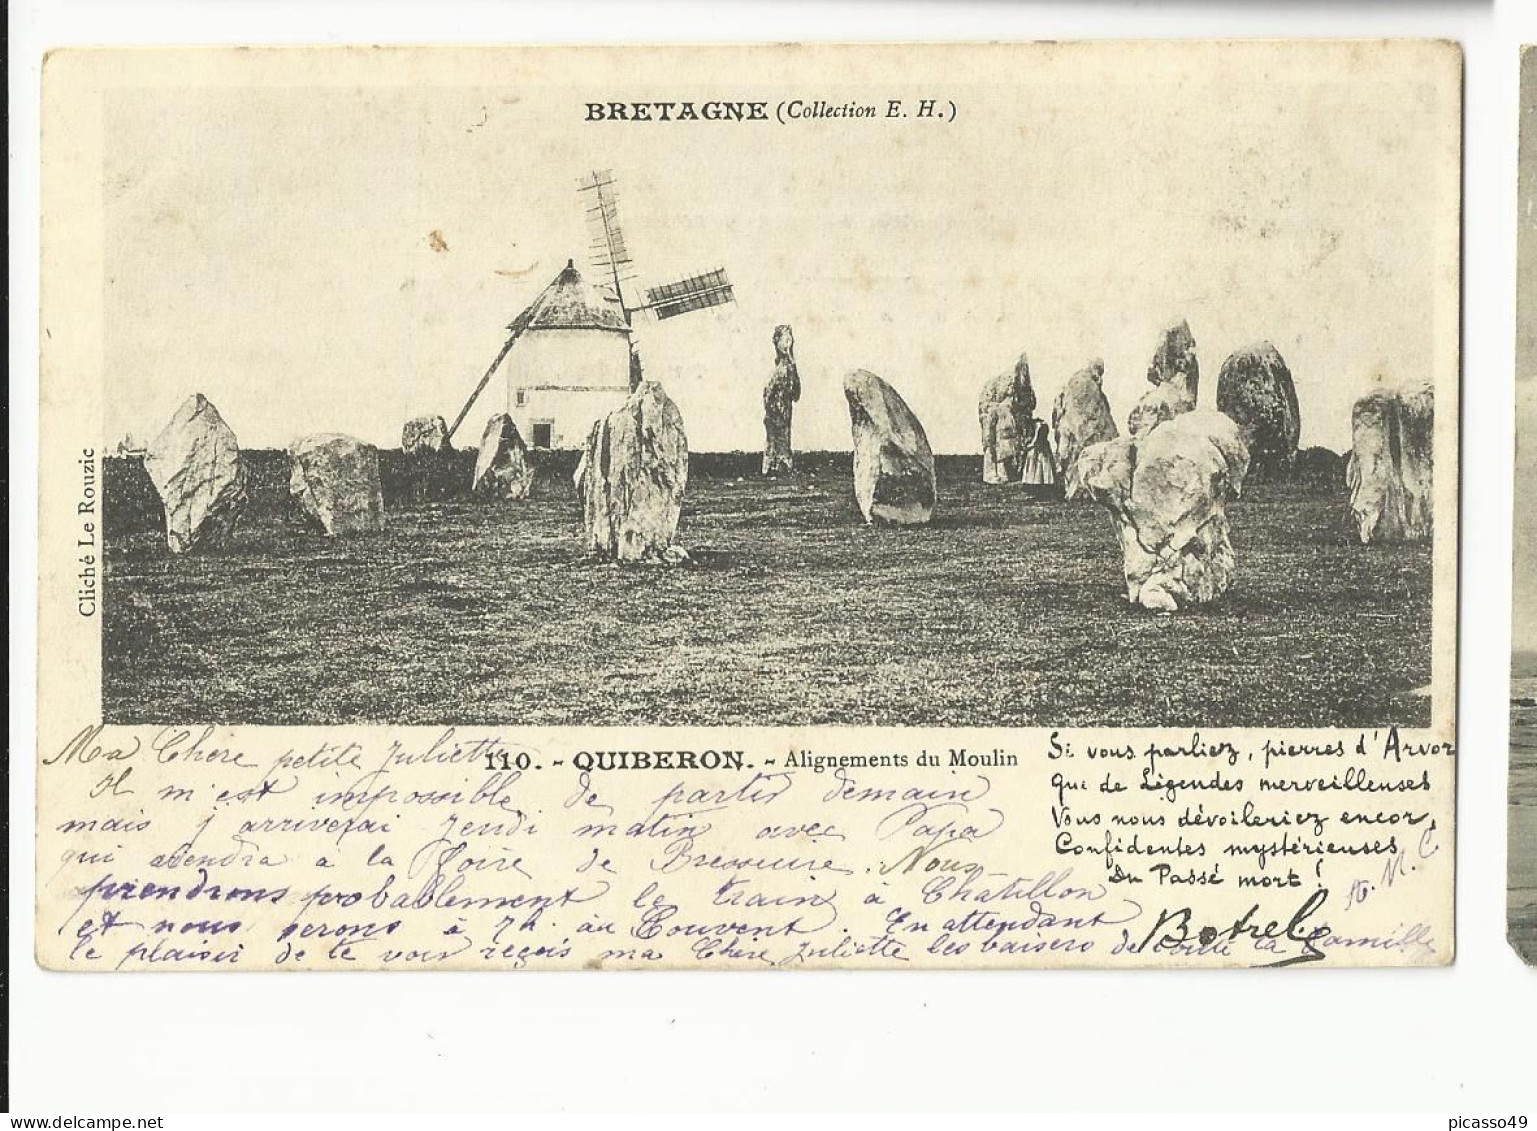 BRETAGNE (Collection E. H.)
Cliché Le Rouzic
110. - QUIBERON. - Alignements du Moulin
Si vous parliez, pierres d'Arvor
Que de Légendes merveilleuses
Vous nous dévoileriez encor,
Confidentes mystérieuses
Du Passé mort !
Botrel
Ma Chère petite Juliette
Il m'est impossible de partir demain
mais j'arriverai Jeudi matin avec Papa
qui viendra à la Foire de Bressuire. Nous
prendrons probablement le train à Châtillon
et nous serons à 7h. au Couvent. En attendant
le plaisir de te voir reçois ma Chère Juliette les baisers de toute la famille
picasso49
delcampe.net